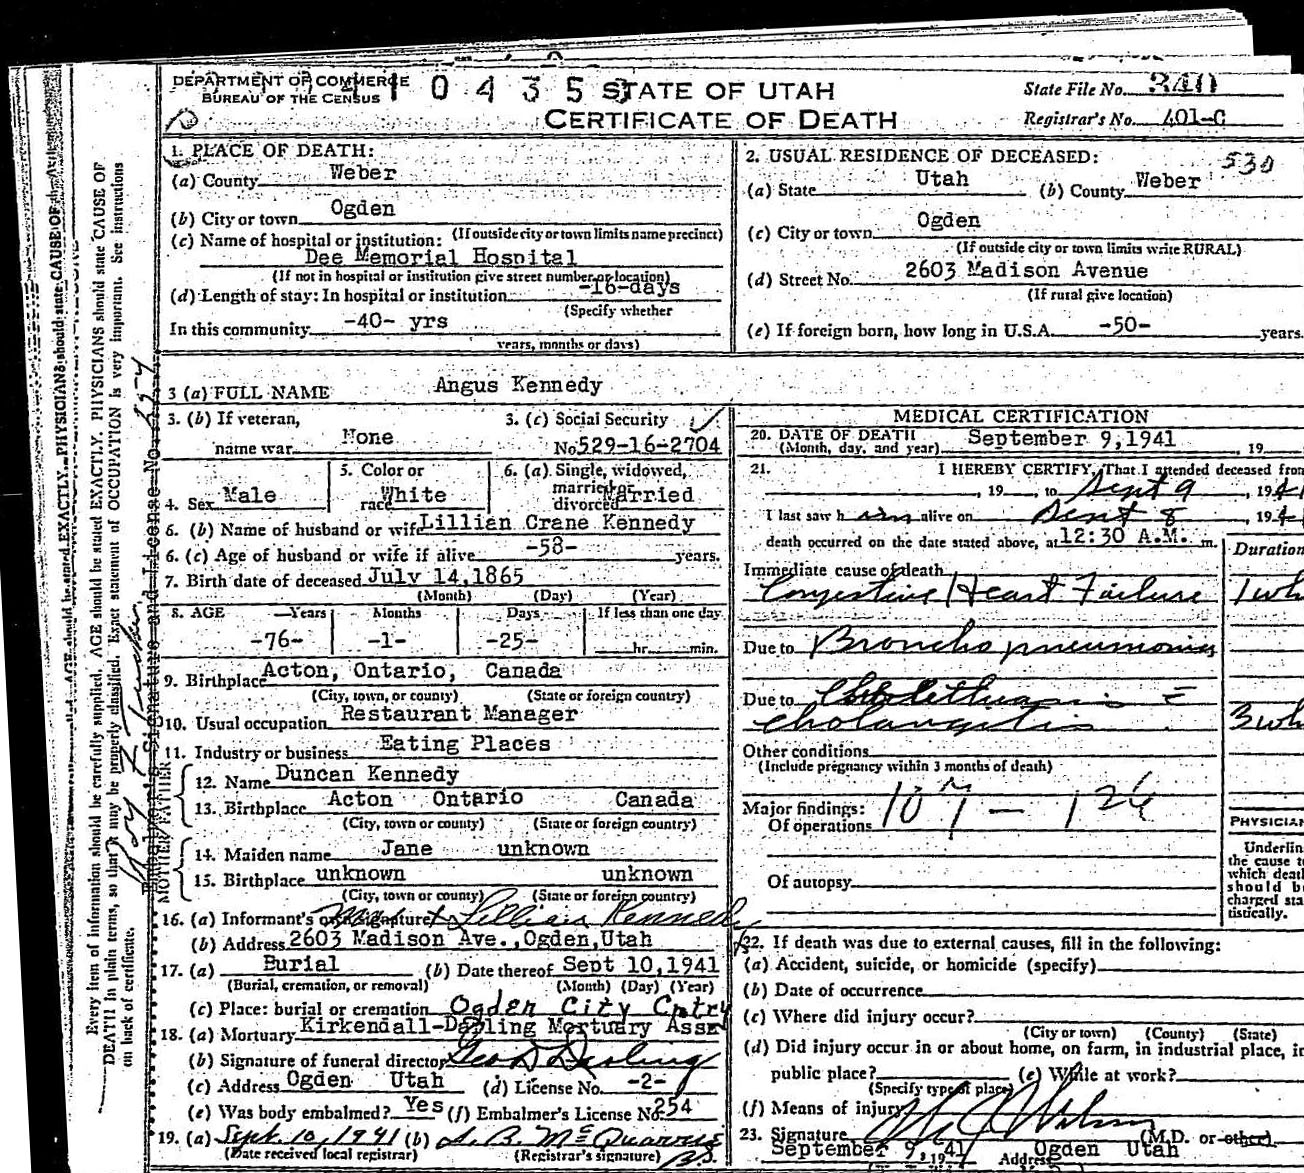 DEPARTMENT OF COMMERCE
BUREAU OF THE CENSUS
0 4 3 5
STATE OF UTAH
CERTIFICATE OF DEATH
State File No. 340
Registrar's No. 401-C
1. PLACE OF DEATH:
(a) County Weber
(b) City or town Ogden
(If outside city or town limits name precinct)
(c) Name of hospital or institution:
Dee Memorial Hospital
(If not in hospital or institution give street number or location)
(d) Length of stay: In hospital or institution -16-days
(Specify whether
In this community -40- yrs
years, months or days)
2. USUAL RESIDENCE OF DECEASED: 530
(a) State Utah (b) County Weber
(c) City or town Ogden
(If outside city or town limits write RURAL)
(d) Street No. 2603 Madison Avenue
(If rural give location)
(e) If foreign born, how long in U.S.A. -50- years.
3 (a) FULL NAME Angus Kennedy
3. (b) If veteran, name war None
3. (c) Social Security No 529-16-2704
4. Sex Male
5. Color or race White
6. (a) Single, widowed, married or divorced Married
6. (b) Name of husband or wife Lillian Crane Kennedy
6. (c) Age of husband or wife if alive -58- years.
7. Birth date of deceased July 14,1865
(Month) (Day) (Year)
8. AGE Years Months Days If less than one day
-76- -1- -25- hr. min.
9. Birthplace Acton, Ontario, Canada
(City, town, or county) (State or foreign country)
10. Usual occupation Restaurant Manager
11. Industry or business Eating Places
FATHER
12. Name Duncan Kennedy
13. Birthplace Acton Ontario Canada
(City, town or county) (State or foreign country)
MOTHER
14. Maiden name Jane unknown
15. Birthplace unknown unknown
(City, town or county) (State or foreign country)
16. (a) Informant's own signature Lillian Kennedy
(b) Address 2603 Madison Ave.,Ogden,Utah
17. (a) Burial (b) Date thereof Sept 10,1941
(Burial, cremation, or removal) (Month) (Day) (Year)
(c) Place: burial or cremation Ogden City Cmtry
18. (a) Mortuary Kirkendall-Darling Mortuary Assn
(b) Signature of funeral director Geo D Darling
(c) Address Ogden Utah (d) License No. -2-
(e) Was body embalmed? Yes (f) Embalmer's License No 254
19. (a) Sept. 10, 1941 (b)
(Date received local registrar) (Registrar's signature)
MEDICAL CERTIFICATION
20. DATE OF DEATH September 9,1941 , 19
(Month, day, and year)
21. I HEREBY CERTIFY, That I attended deceased from
, 19 , to Sept 9 , 1941
I last saw him alive on Sept 8 , 194
death occurred on the date stated above, at 12:30 A.M. m.
Duration
Immediate cause of death
Congestive Heart Failure 1 wk
Due to Broncho pneumonia
Due to
cholangitis 3 wk
Other conditions
(Include pregnancy within 3 months of death)
Major findings:
Of operations
107 - 126
Of autopsy
PHYSICIAN
Underline
the cause to
which death
should be
charged sta
tistically.
22. If death was due to external causes, fill in the following:
(a) Accident, suicide, or homicide (specify)
(b) Date of occurrence
(c) Where did injury occur?
(City or town) (County) (State)
(d) Did injury occur in or about home, on farm, in industrial place, in
public place? (e) While at work?
(Specify type of place)
(f) Means of injury
23. Signature (M.D. or other).
September 9, 1941 Address Ogden Utah
Every item of information should be carefully supplied. AGE should be stated EXACTLY. PHYSICIANS should state CAUSE OF
DEATH in plain terms, so that it may be properly classified. Exact statement of OCCUPATION is very important. See instructions
on back of certificate.
Signature and License No. 254